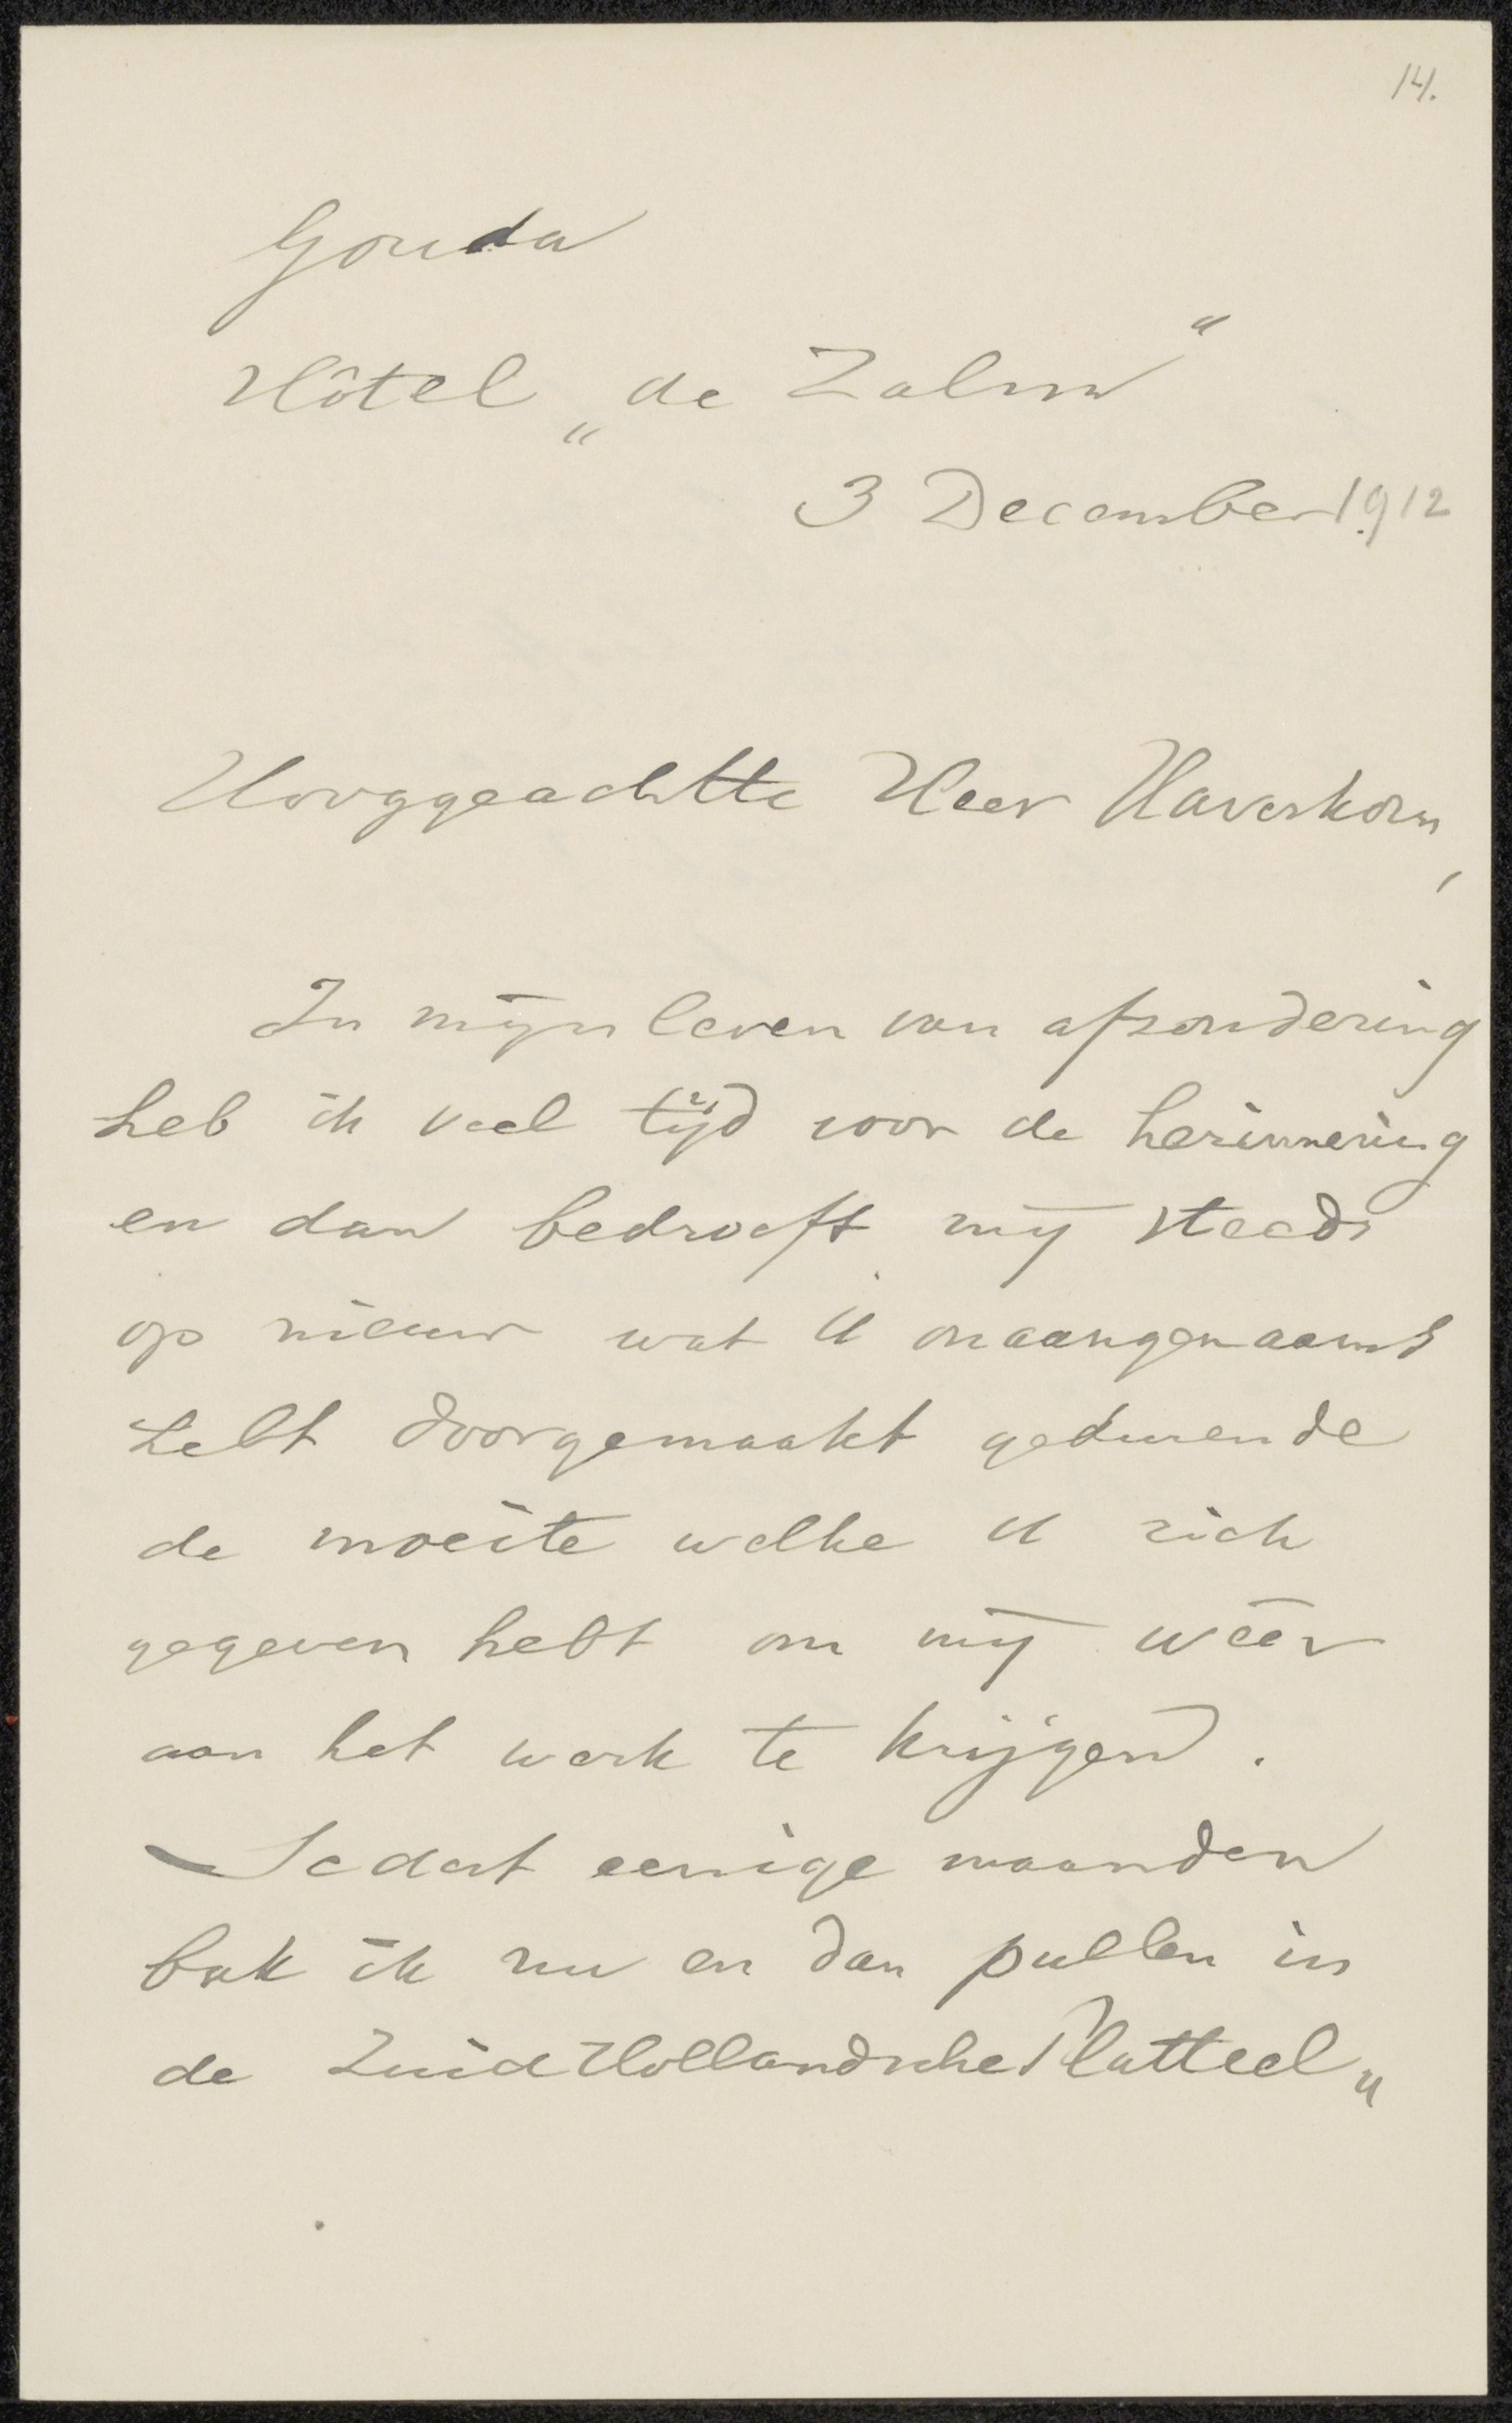 14.
Gouda
Hôtel „de Zalm"
3 December 1912
Hooggeachtte Heer Haverkorn,
In mijn leven van afzondering
heb ik veel tijd voor de herinnering
en dan bedroeft mij steeds
op nieuw wat U onaangenaams
hebt doorgemaakt gedurende
de moeite welke U zich
gegeven hebt om mij wéér
aan het werk te krijgen.
Sedert eenige maanden
bak ik nu en dan pullen in
de Zuid Hollandsche Platteel„